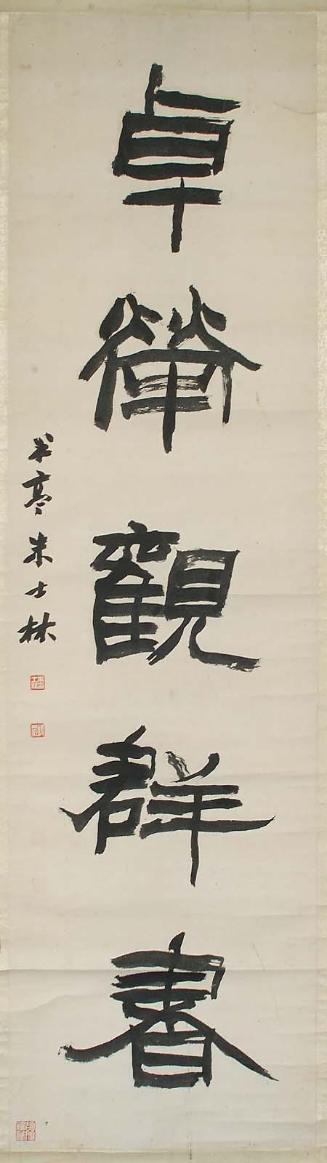 卓犖觀群書
米亭朱士林